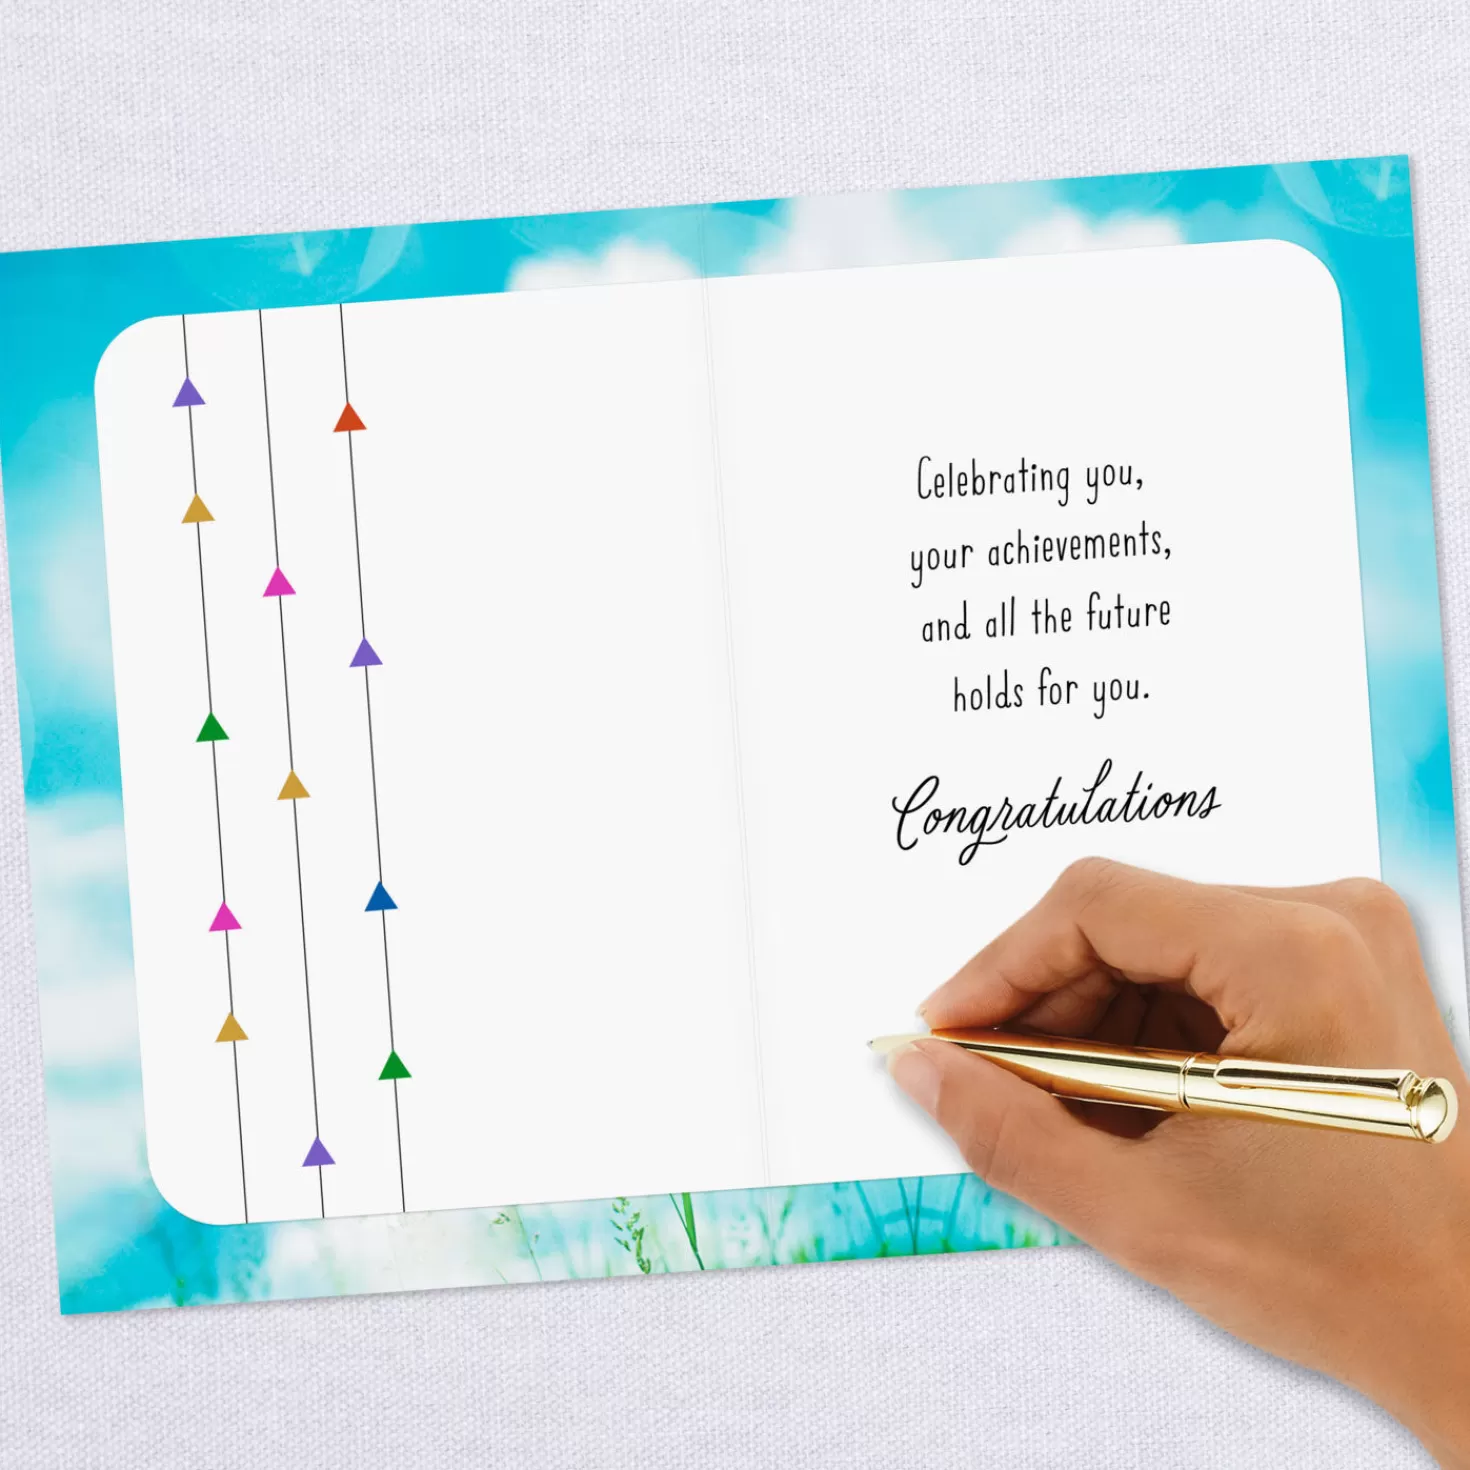 Celebrating you,
your achievements,
and all the future
holds for you.
Congratulations